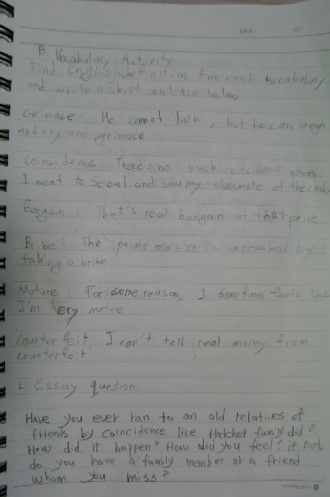 DATE NO
B Vocabulary Activity
Find English definition for each vocabulary
and write a short sentence below
Grimace : He cannot talk, but he can laugh
and cry and grimace
Coincidence : There's no such coincidence when
I went to Seoul and saw my classmate at the
Bargain : That's real bargain at that price
Bribe : The prime minister is impeached by
taking a bribe
Mature : For some reason, I sometimes feels that
I'm very mature
Counterfeit, I can't tell real money from
counterfeit
Essay question
Have you ever ran to an old relatives of
friends by coincidence like Hatchet family did?
How did it happen? How did you feel? if not,
do you have a family member or a friend
whom you miss?